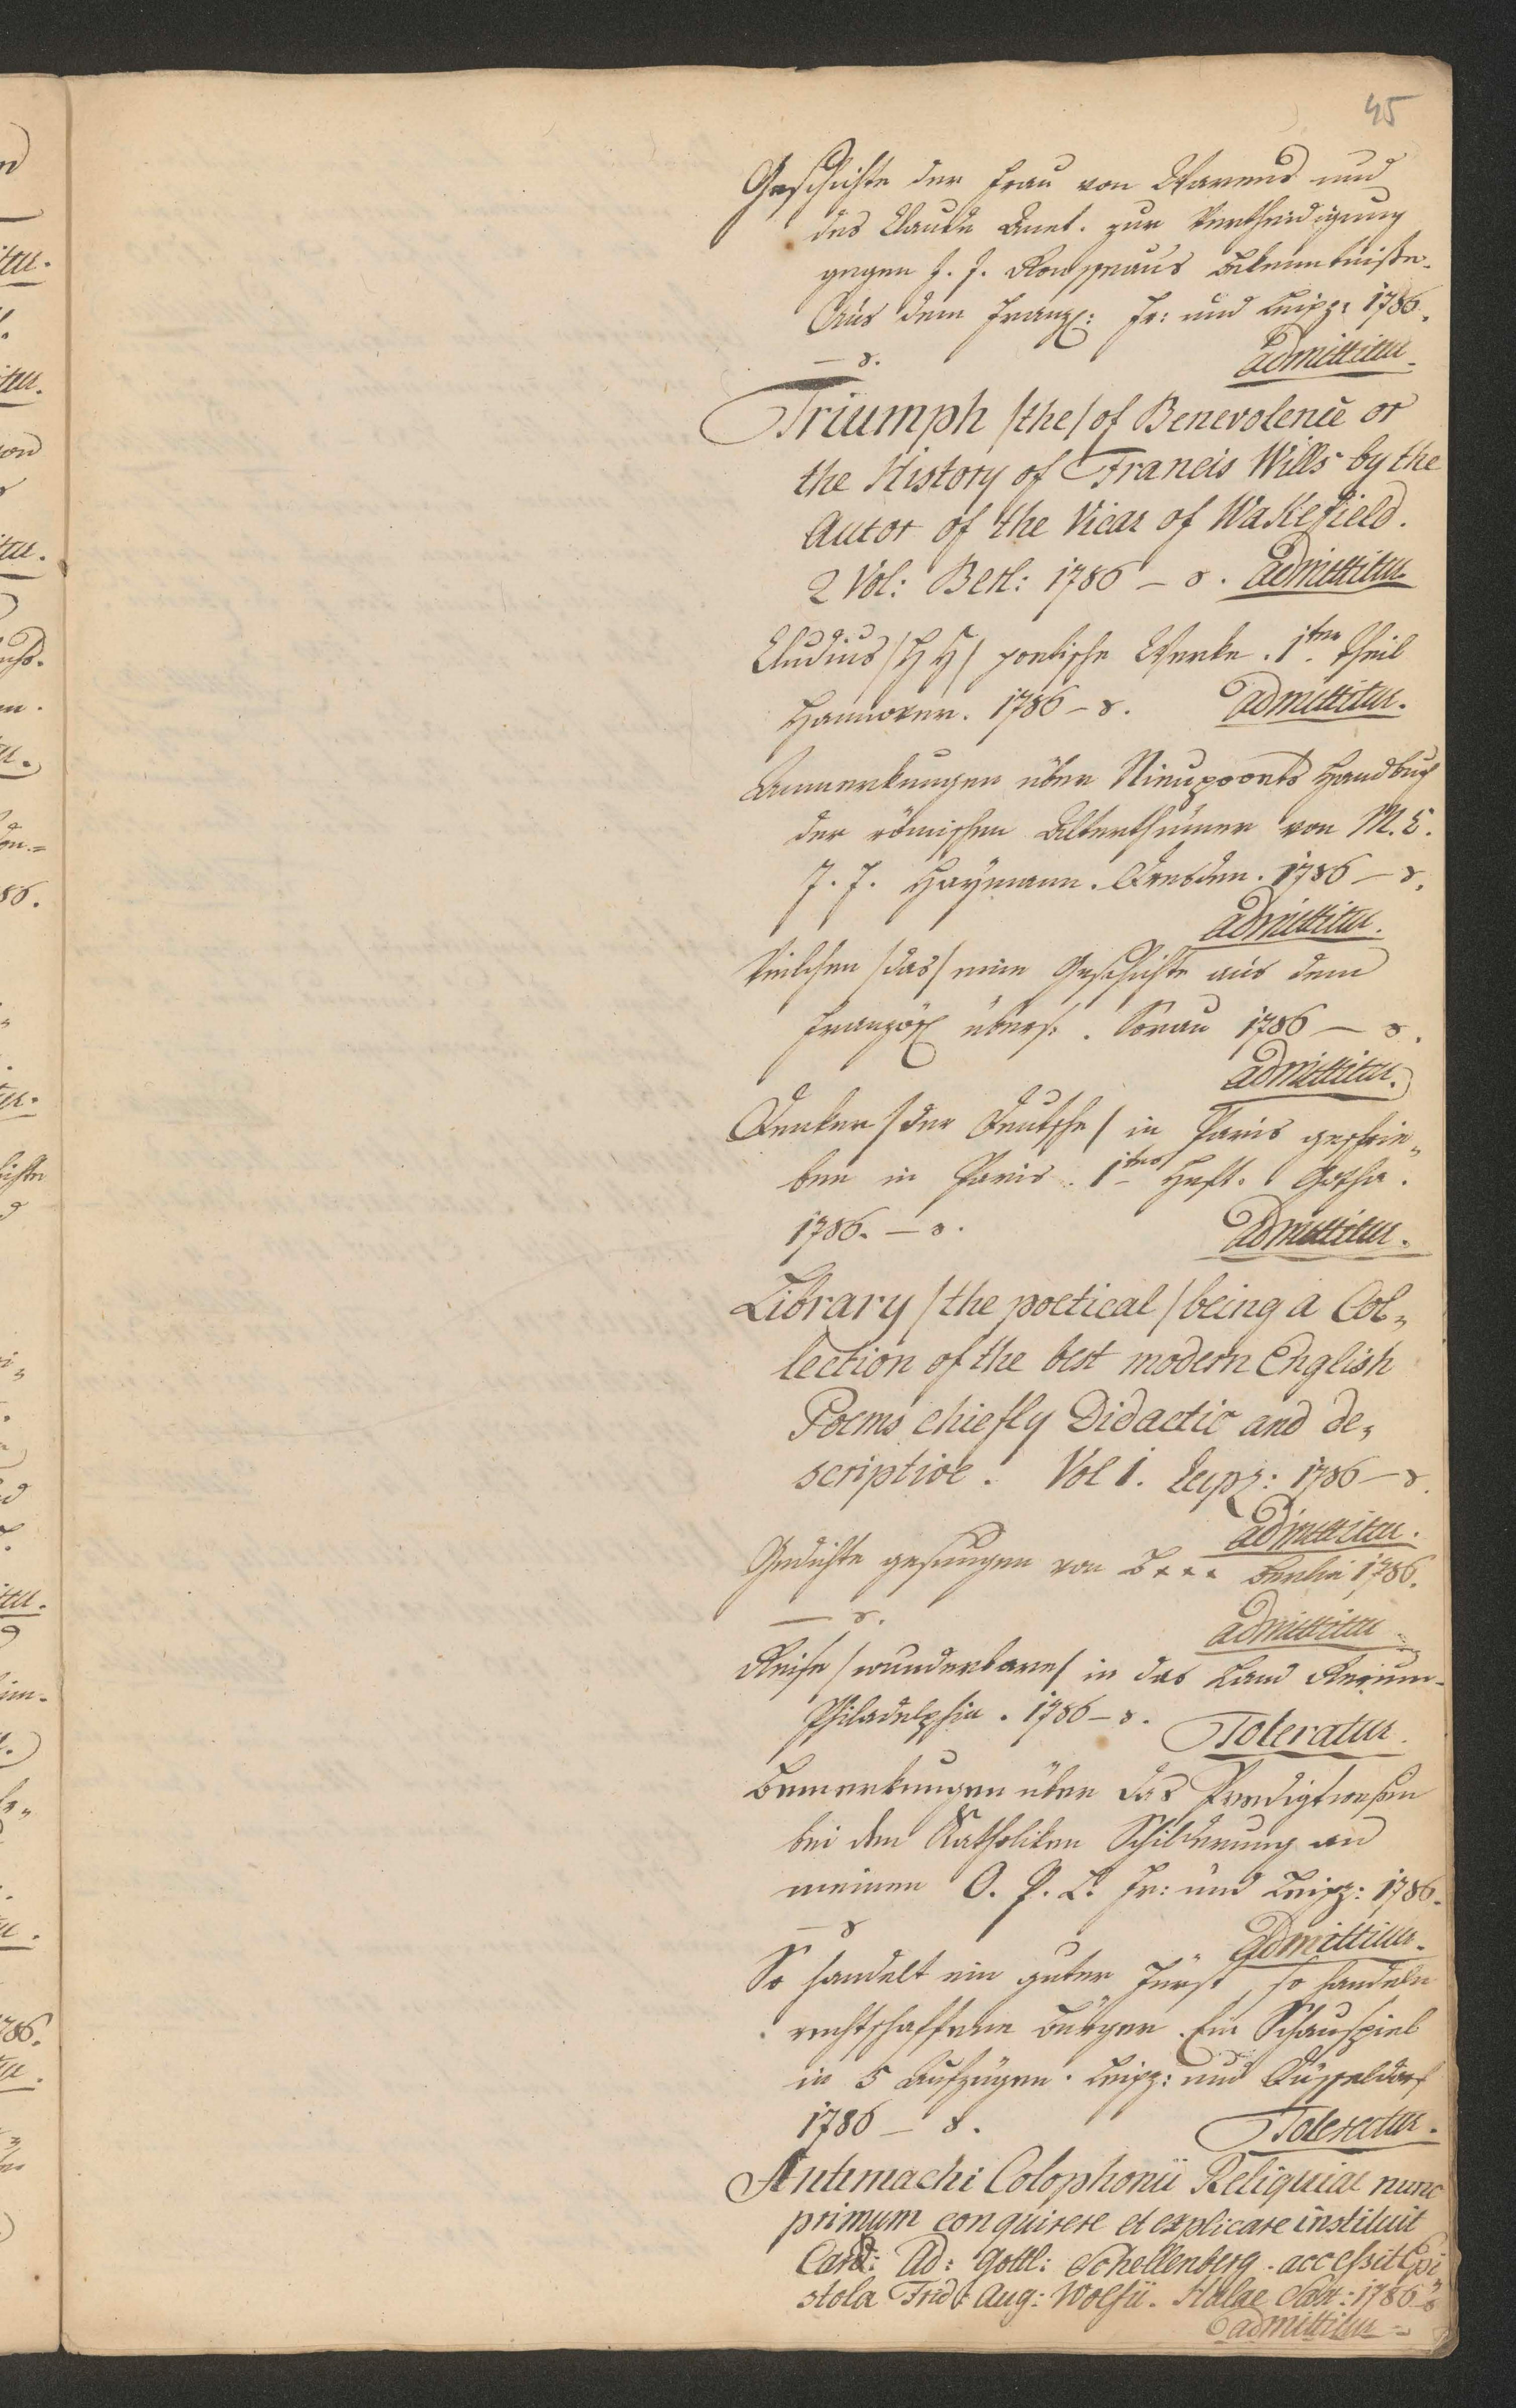 45
Geschichte der Frau von Warens und
des Claude Anet. zur Vertheidigung
gegen J. J. Rousseaus Bekenntniße.
Aus dem Franz: Fr: und Leipz: 1786.
— 8. admittitur.
Triumph /the/ of Benevolence or
the History of Francis Wills by the
Autor of the Vicar of Wakefield.
2 Vol: Berl: 1786 – 8. admittitur
Cludius /H H/ poetische Werke. 1ter Theil
Hannover. 1786 – 8. admittitur.
Anmerkungen über Nieupoorts Handbuch
der römischen Alterthümer von M. C.
J. J. Haymann. Dresden. 1786 – 8.
admittitur.
Veilchen /das/ eine Geschichte aus dem
Französ übers. Sorau 1786 — 8.
admittitur.
Denker /der Deutsche/ in Paris geschrie„
ben in Paris. 1tes Heft. Gotha.
1786. – 8. admittitur.
Library /the poetical/ being a Col„
lection of the best modern English
Poems chiefly Didactic and de„
scriptive. Vol 1. Leipz: 1786 – 8.
admittitur.
Gedichte gesungen von B*** Berlin 1786.
— 8. admittitur
Reise /wunderbare/ in das Land
Philadelphia. 1786 – 8. Toleratur.
Bemerkungen über das Predigtwesen
bei den Katholiken Schilderung an
meinen O. P. L. Fr: und Leipz: 1786.
— 8 admittitur.
So handelt ein guter Fürst, so handeln
rechtschaffene Bürger. Ein Schauspiel
in 5 Aufzügen. Leipz: und Düsseldorf
1786 – 8. Toleratur.
Antimachi Colophonii Reliquiae nunc
primum conquirere et explicare instituit
Card: Ad: Gottl: Schellenberg. accessit Epi„
stola Frid: Aug: Wolfii. Halae Sax: 1786 – 8
admittitur